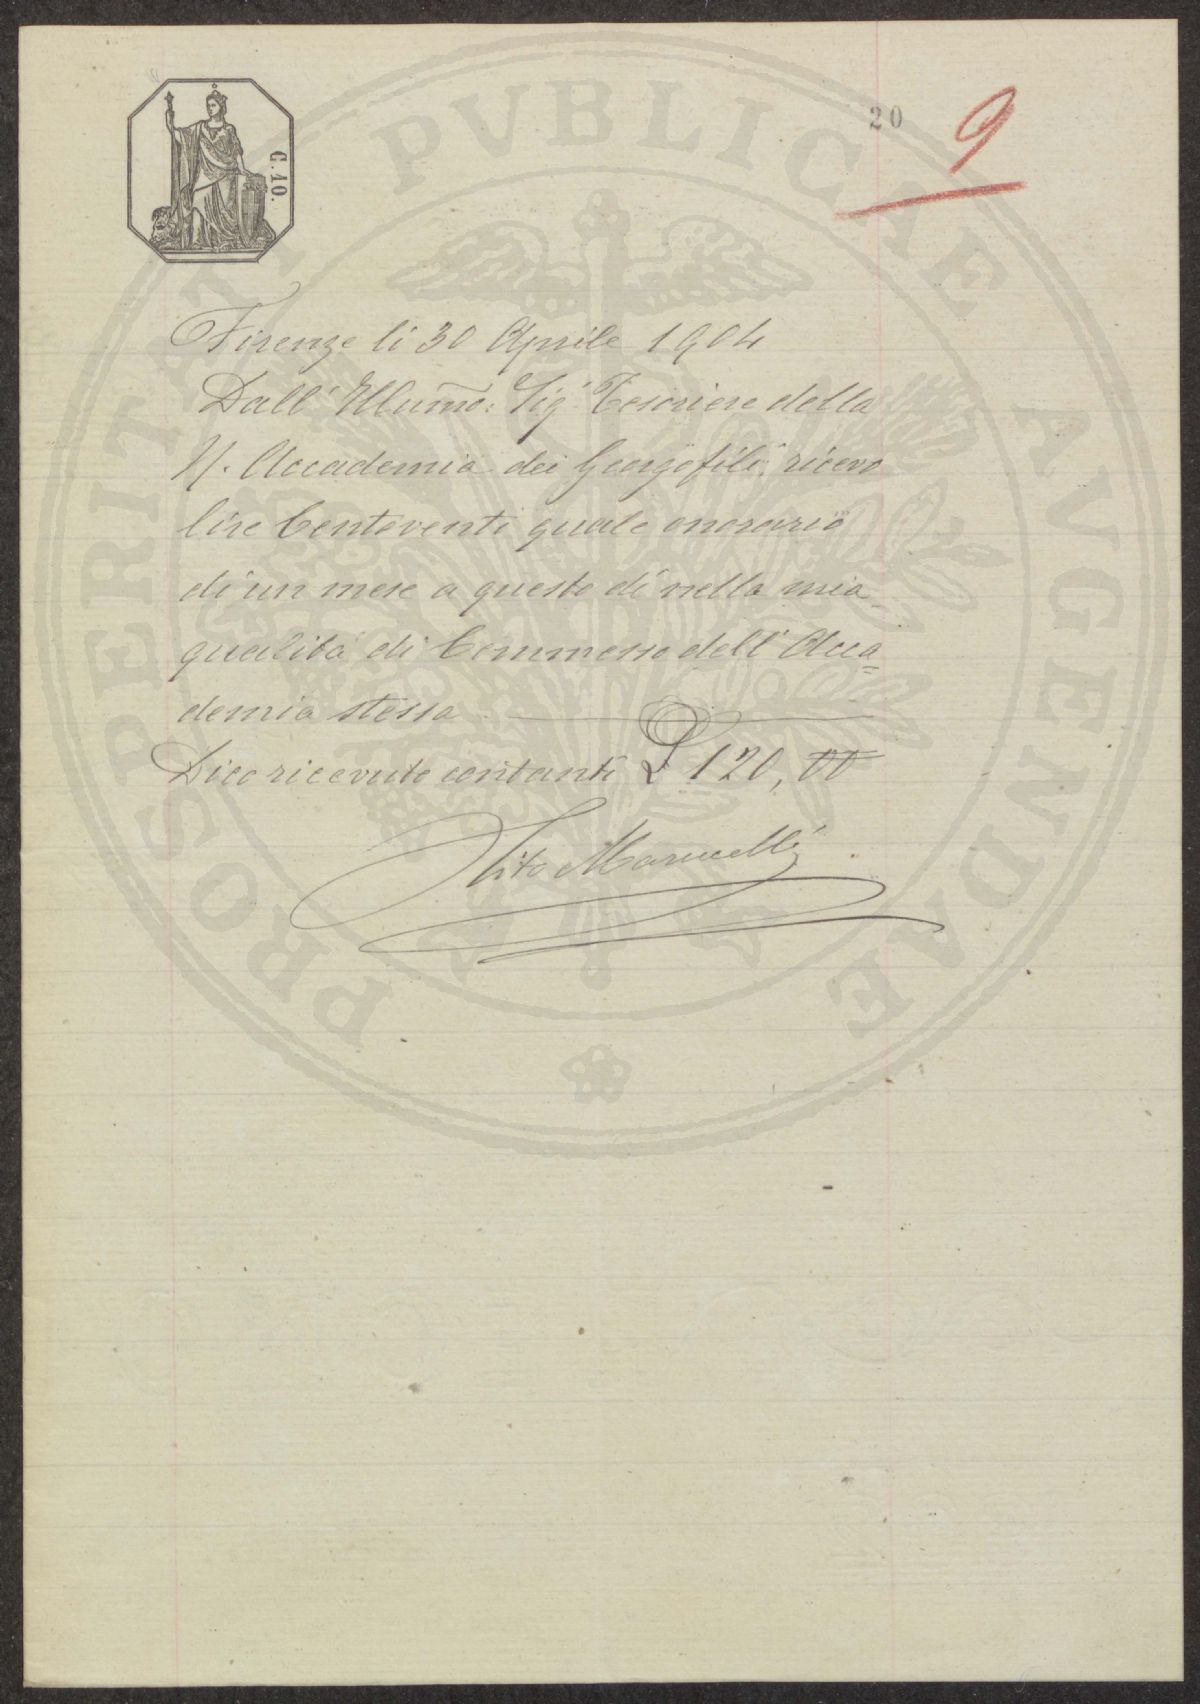 20
9
C. 10.
Firenze li 30 Aprile 1904
Dall' Illumo: Sig. Tesoriere della
R. Accademia dei Georgofili, ricevo
lire Centoventi quale onorario
di un mese a questo dì nella mia
qualità di Commesso dell' Acca=
demia stessa
Dico ricevute contanti £ 120,00
Tito Marucelli
PROSPERITATI PVBLICAE AVGENDAE